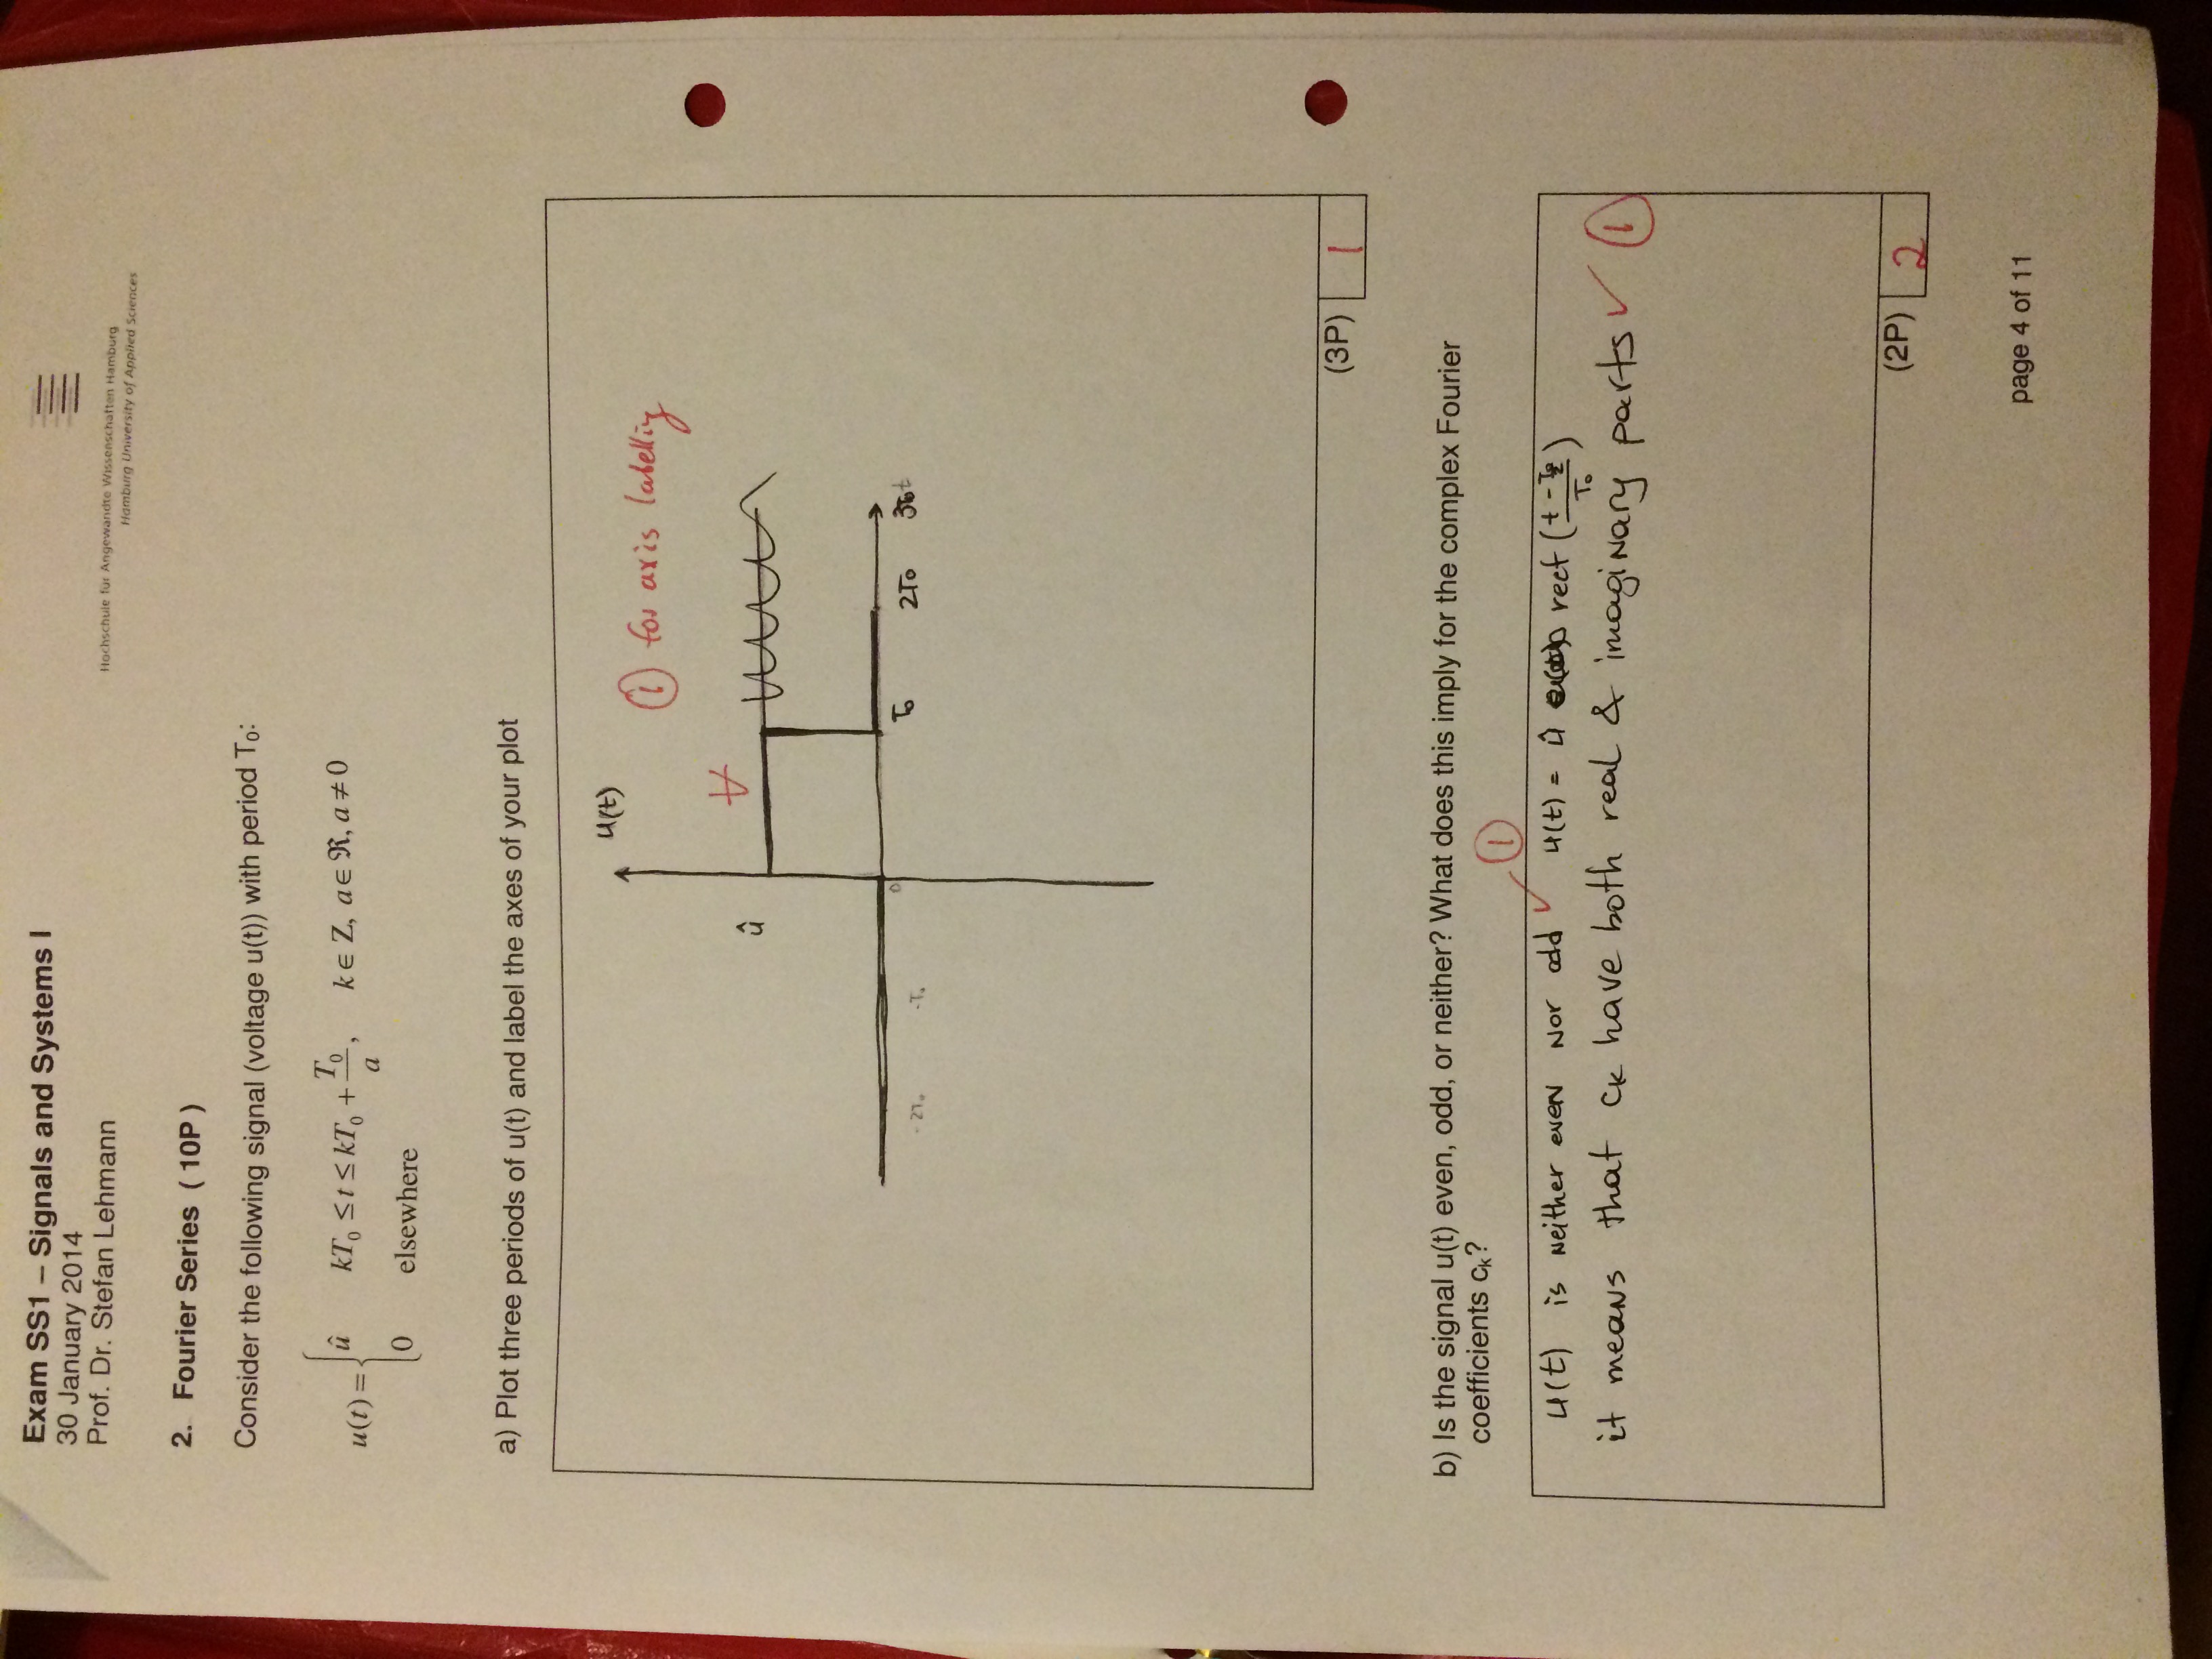 Exam SS1 – Signals and Systems I
30 January 2014
Prof. Dr. Stefan Lehmann
Hochschule für Angewandte Wissenschaften Hamburg
Hamburg University of Applied Sciences
2. Fourier Series ( 10P )
Consider the following signal (voltage u(t)) with period T₀:
u(t) = { û kT₀ ≤ t ≤ kT₀ + T₀/a, k ∈ Z, a ∈ ℜ, a ≠ 0
0 elsewhere
a) Plot three periods of u(t) and label the axes of your plot
u(t)
① for axis labelling
û
0
-2T₀ -T₀ T₀ 2T₀ 3T₀ t
(3P) 1
b) Is the signal u(t) even, odd, or neither? What does this imply for the complex Fourier
coefficients cₖ?
①
u(t) is neither even nor odd ✓ u(t) = û rect ((t - T₀/2)/T₀)
it means that cₖ have both real & imaginary parts ✓ ①
(2P) 2
page 4 of 11